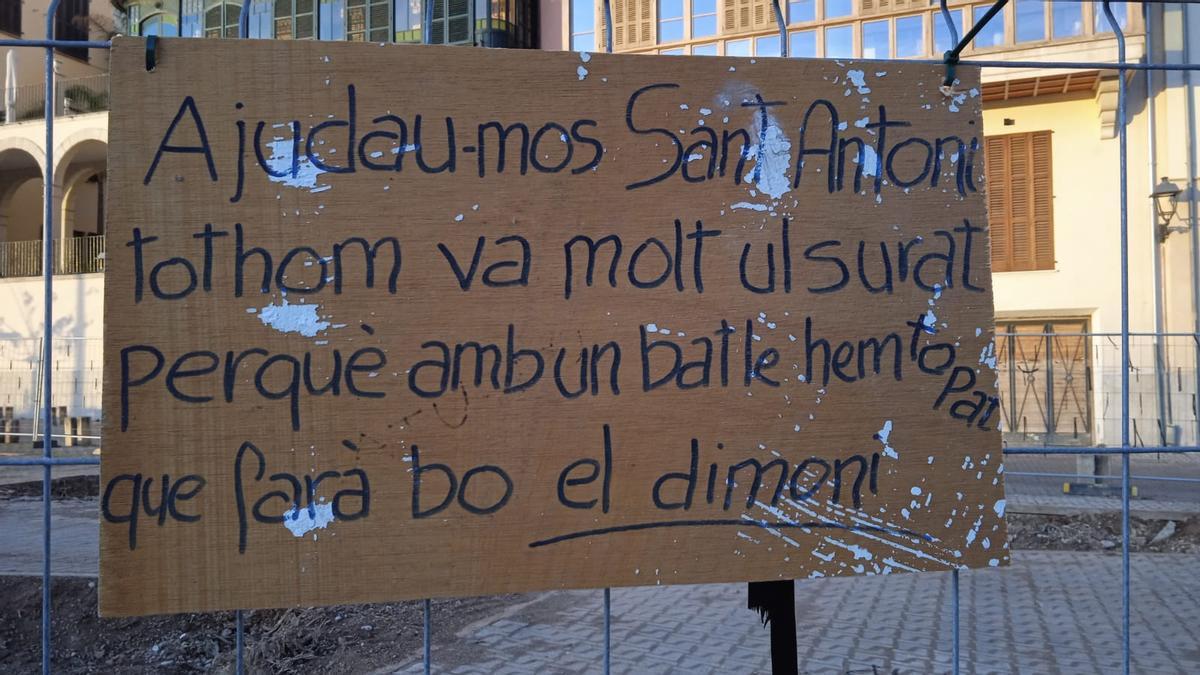 Ajudau-mos Sant Antoni
tothom va molt ulsurat
perquè amb un batle hem topat
que farà bo el dimoni